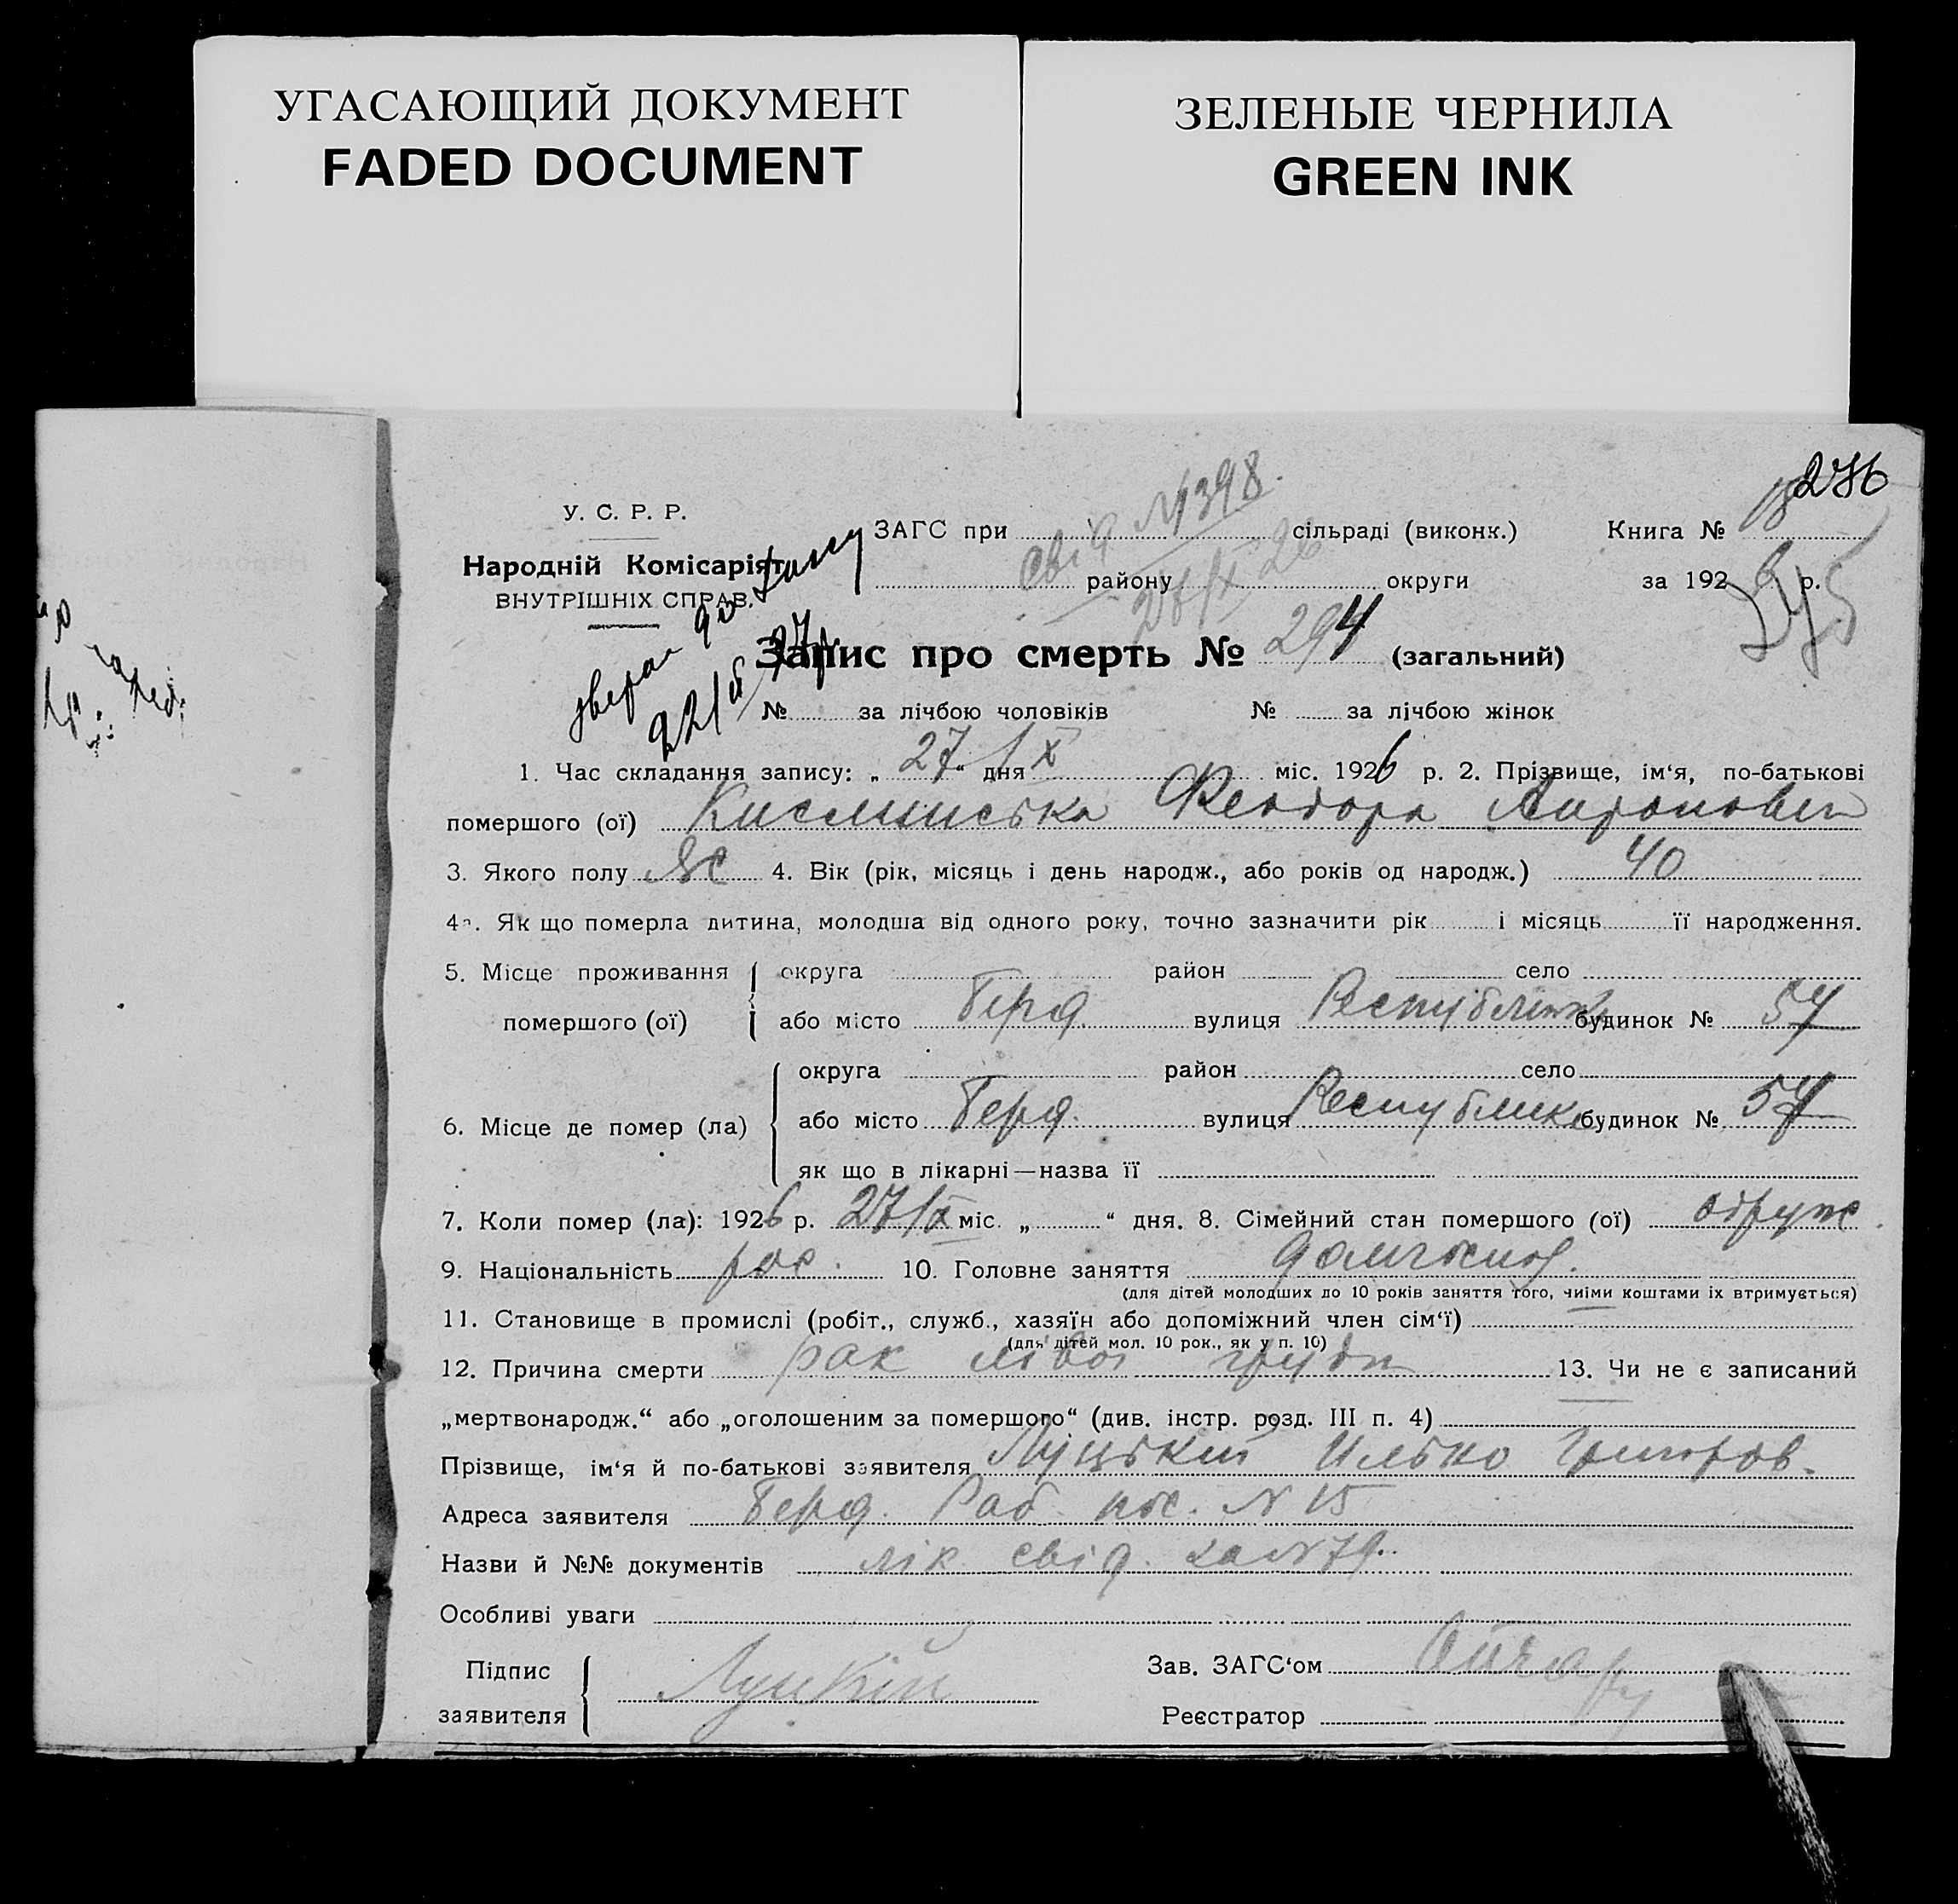 УГАСАЮЩИЙ ДОКУМЕНТ
FADED DOCUMENT
ЗЕЛЕНЫЕ ЧЕРНИЛА
GREEN INK
276
У. С. Р. Р.
Народній Комісаріят
ВНУТРІШНІХ СПРАВ.
ЗАГС при сільраді (виконк.) Книга № 18
свід №1398.
району округи за 1926 р.
27/IX 26
245
Запис про смерть № 294 (загальний)
22/
№ за лічбою чоловіків № за лічбою жінок
1. Час складання запису: „27“ дня IX міс. 1926 р. 2. Прізвище, ім‘я, по-батькові
помершого (ої) Феодора
3. Якого полу ж 4. Вік (рік, місяць і день народж., або років од народж.) 40
4а. Як що померла дитина, молодша від одного року, точно зазначити рік і місяць її народження.
5. Місце проживання округа район село
помершого (ої) або місто Берд. вулиця Республіки будинок № 57
округа район село
6. Місце де помер (ла) або місто Берд. вулиця Республик будинок № 57
як що в лікарні—назва її
7. Коли помер (ла): 1926 р. 27/IX міс. „ “ дня. 8. Сімейний стан помершого (ої) одруж
9. Національність рос. 10. Головне заняття домгоспод.
(для дітей молодших до 10 років заняття того, чиїми коштами їх втримується)
11. Становище в промислі (робіт., служб., хазяїн або допоміжний член сім‘ї)
(для дітей мол. 10 рок., як у п. 10)
12. Причина смерти рак лівої груди 13. Чи не є записаний
„мертвонародж.“ або „оголошеним за помершого“ (див. інстр. розд. III п. 4)
Прізвище, ім‘я й по-батькові заявителя Луцький Илько Григоров.
Адреса заявителя Берд. Раб. пос. N 15
Назви й №№ документів лік свід. за N 79.
Особливі уваги
Підпис Зав. ЗАГС‘ом
заявителя Луцкій
Реєстратор